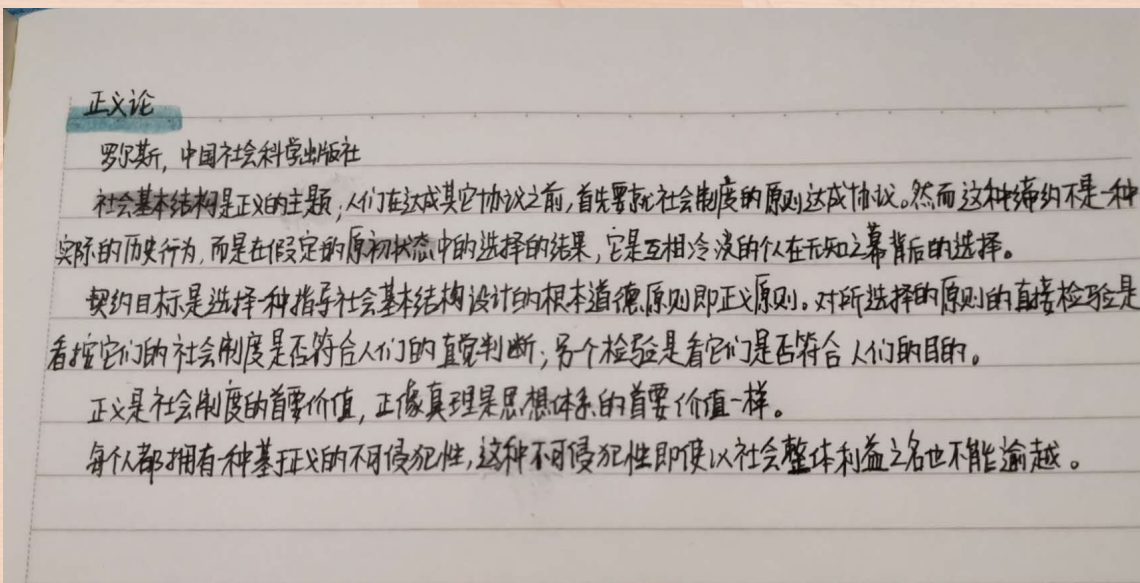 正义论
罗尔斯,中国社会科学出版社
社会基本结构是正义的主题;人们在达成其它协议之前,首先要就社会制度的原则达成协议。然而这种缔约不是一种
实际的历史行为,而是在假定的原初状态中的选择的结果,它是互相冷淡的个人在无知之幕背后的选择。
契约目标是选择一种指导社会基本结构设计的根本道德原则即正义原则。对所选择的原则的直接检验是
看按它们的社会制度是否符合人们的直觉判断;另个检验是看它们是否符合人们的目的。
正义是社会制度的首要价值,正像真理是思想体系的首要价值一样。
每个人都拥有一种基于正义的不可侵犯性,这种不可侵犯性即使以社会整体利益之名也不能逾越。